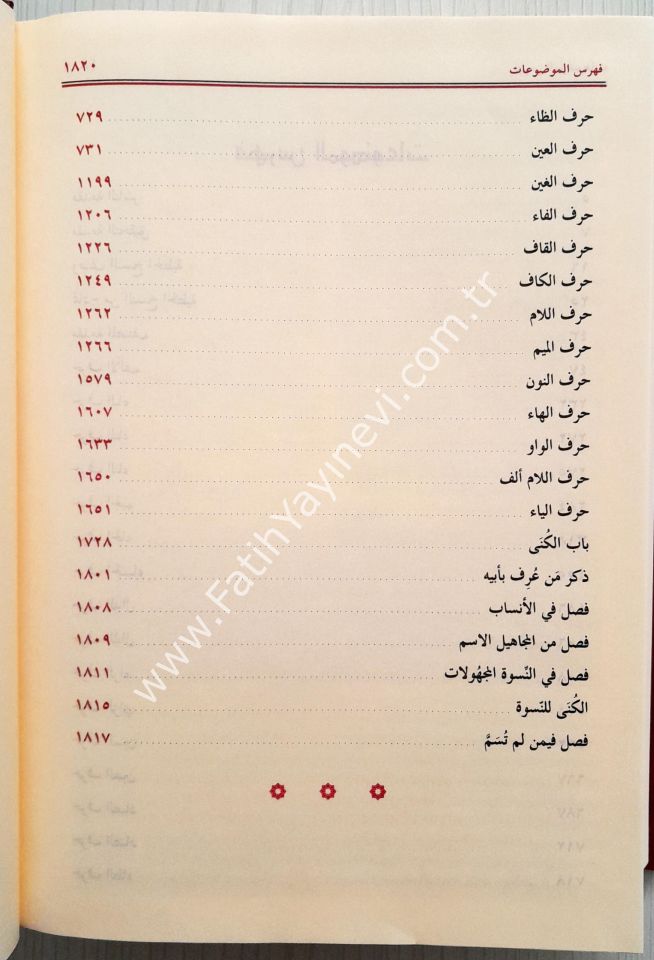 فهرس الموضوعات ١٨٢٠
حرف الظاء ٧٢٩
حرف العين ٧٣١
حرف الغين ١١٩٩
حرف الفاء ١٢٠٦
حرف القاف ١٢٢٦
حرف الكاف ١٢٤٩
حرف اللام ١٢٦٢
حرف الميم ١٢٦٦
حرف النون ١٥٧٩
حرف الهاء ١٦٠٧
حرف الواو ١٦٣٣
حرف اللام ألف ١٦٥٠
حرف الياء ١٦٥١
باب الكُنَى ١٧٢٨
ذكر مَن عُرِف بأبيه ١٨٠١
فصل في الأنساب ١٨٠٨
فصل من المجاهيل الاسم ١٨٠٩
فصل في النِّسوة المجهُولات ١٨١١
الكُنَى للنِّسوة ١٨١٥
فصل فيمن لم تُسَمَّ ١٨١٧
www.FatihYayinevi.com.tr